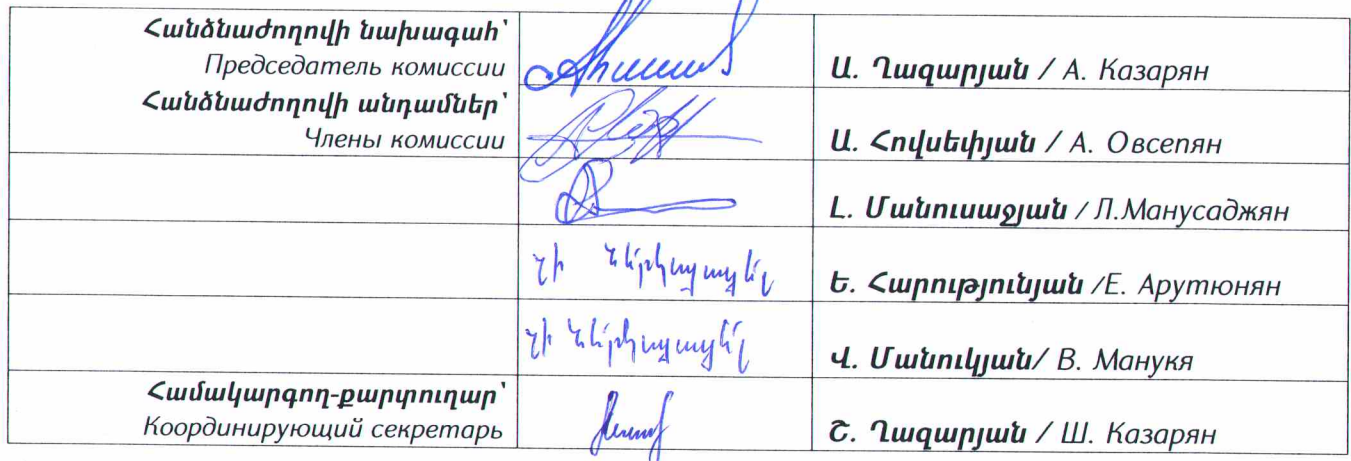 Հանձնաժողովի նախագահ՝
Председатель комиссии
Ա. Ղազարյան / А. Казарян
Հանձնաժողովի անդամներ՝
Члены комиссии
Ա. Հովսեփյան / А. Овсепян
Լ. Մանուսաջյան / Л.Манусаджян
չի ներկայացել
Ե. Հարությունյան /Е. Арутюнян
չի ներկայացել
Վ. Մանուկյան/ В. Манукя
Համակարգող-քարտուղար՝
Координирующий секретарь
Շ. Ղազարյան / Ш. Казарян